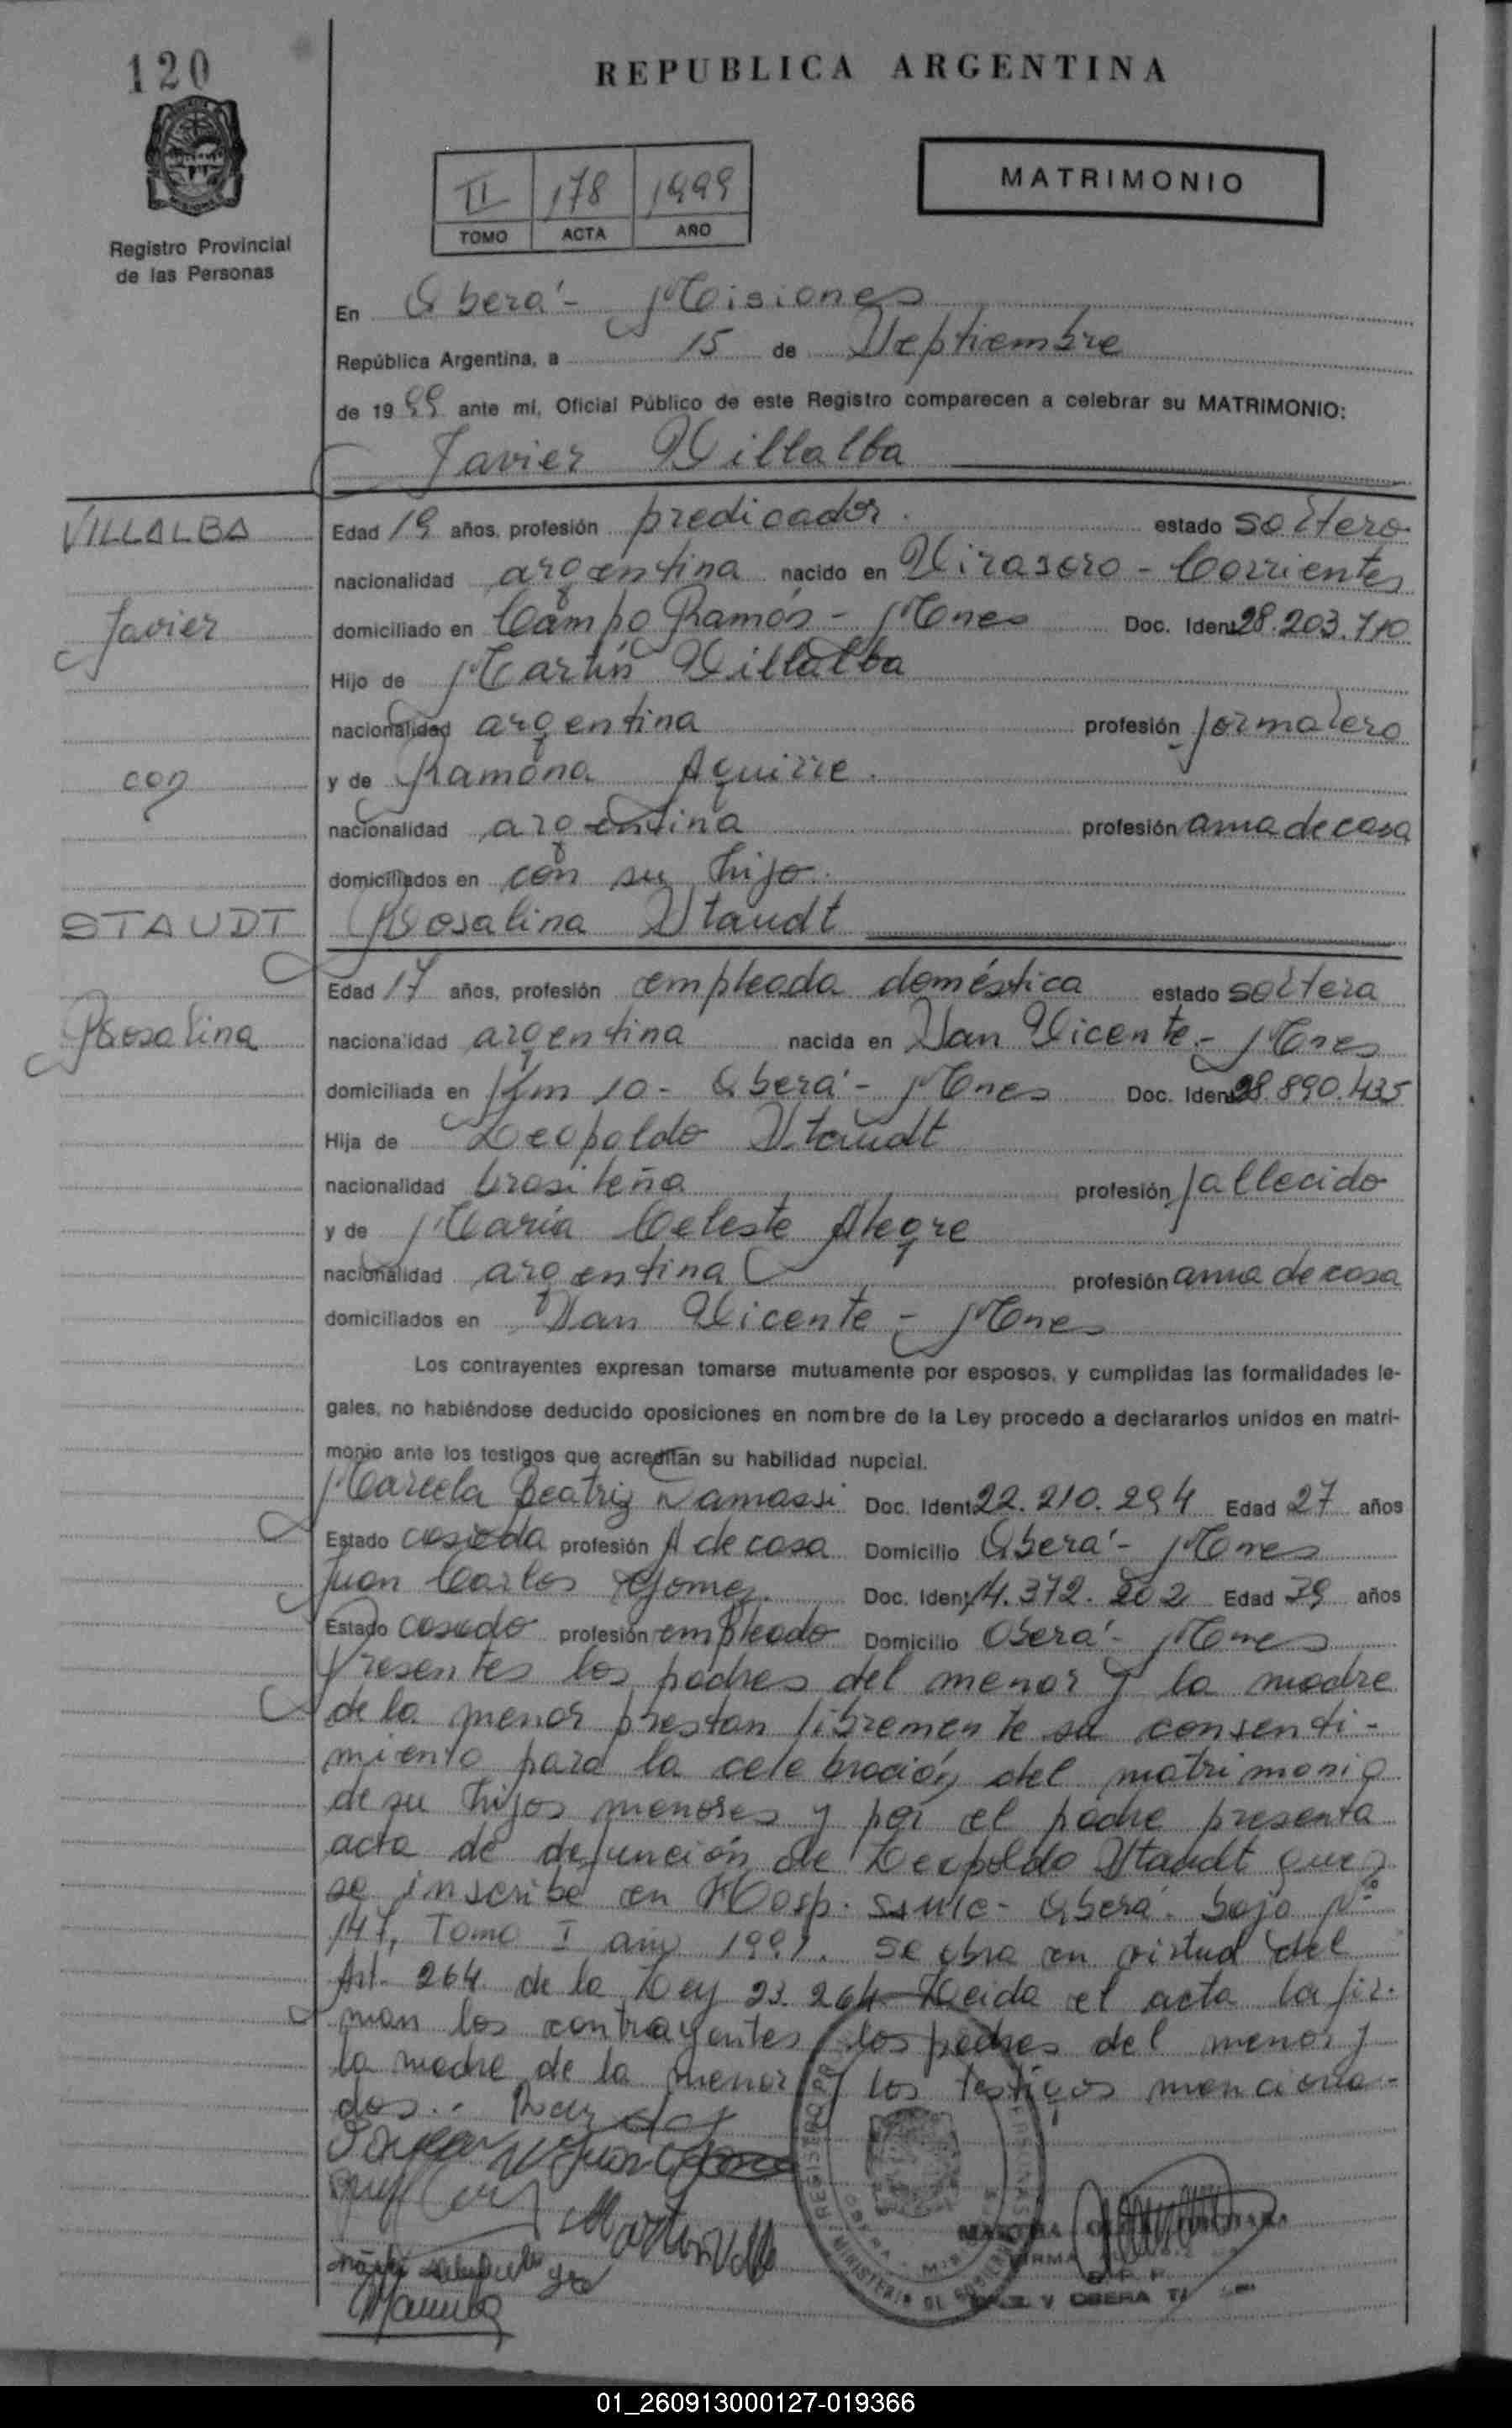 120
REPUBLICA ARGENTINA
II 178 1999
TOMO ACTA AÑO
MATRIMONIO
Registro Provincial
de las Personas
En Oberá - Misiones
República Argentina, a 15 de Septiembre
de 1999 ante mí, Oficial Público de este Registro comparecen a celebrar su MATRIMONIO:
Javier Villalba
VILLALBA
Edad 19 años, profesión predicador. estado soltero
nacionalidad argentina nacido en Virasoro - Corrientes
Javier
domiciliado en Campo Ramón - Mnes Doc. Ident. 28.203.710
Hijo de Martín Villalba
nacionalidad argentina profesión jornalero
con
y de Ramona Aguirre.
nacionalidad argentina profesión ama de casa
domiciliados en con su hijo.
STAUDT
Rosalina Staudt
Edad 17 años, profesión empleada doméstica estado soltera
Rosalina
nacionalidad argentina nacida en San Vicente - Mnes
domiciliada en Km 10 - Oberá - Mnes Doc. Ident. 28.890.435
Hija de Leopoldo Staudt
nacionalidad brasileña profesión fallecido
y de María Celeste Alegre
nacionalidad argentina profesión ama de casa
domiciliados en San Vicente - Mnes
Los contrayentes expresan tomarse mutuamente por esposos, y cumplidas las formalidades le-
gales, no habiéndose deducido oposiciones en nombre de la Ley procedo a declararlos unidos en matri-
monio ante los testigos que acreditan su habilidad nupcial.
Marcela Beatriz Doc. Ident. 22.210.294 Edad 27 años
Estado casada profesión A de casa Domicilio Oberá - Mnes
Juan Carlos Gomez. Doc. Ident. 14.372.202 Edad 39 años
Estado casado profesión empleado Domicilio Oberá - Mnes
Presentes los padres del menor y la madre
de la menor prestan libremente su consenti-
miento para la celebración del matrimonio
de su hijos menores y por el padre presenta
acta de defunción de Leopoldo Staudt que
se inscribe en Hosp. Oberá - bajo Nº
147, Tomo I año 1991. Se obra en virtud del
Art. 264 de la Ley 23.264 Leida el acta la fir-
man los contrayentes, los padres del menor y
la madre de la menor y los testigos menciona-
dos..
REGISTRO
MINISTERIO DE GOBIERNO
OBERA
01_260913000127-019366